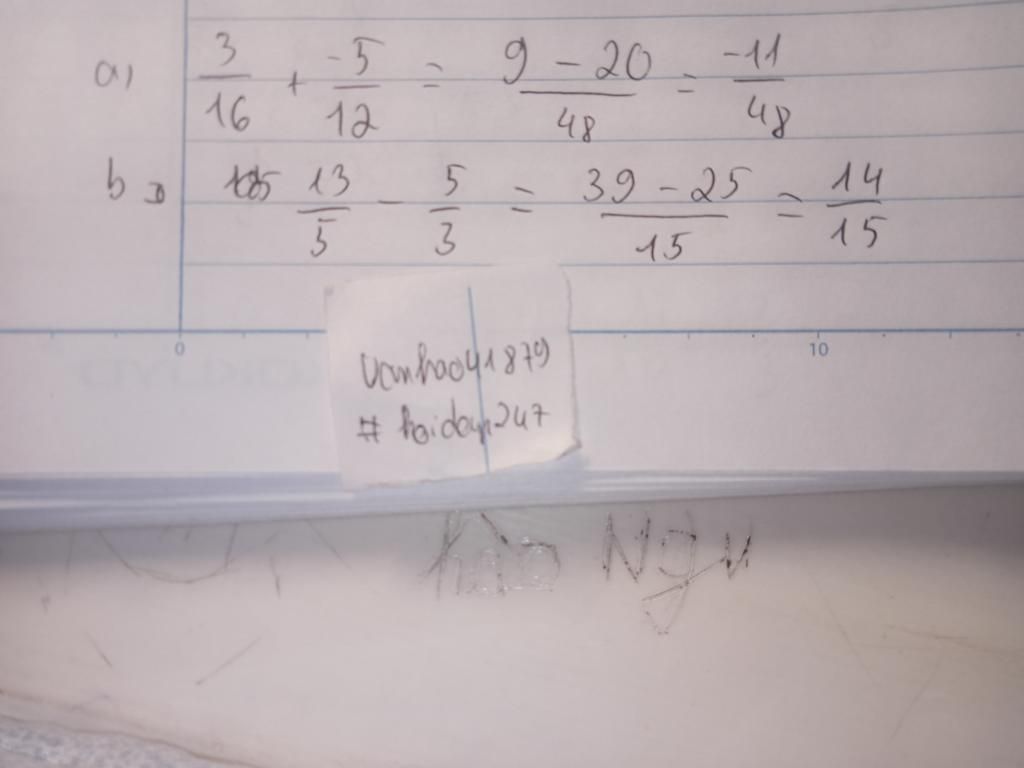 a, 3/16 + -5/12 = 9 - 20/48 = -11/48
b, 13/5 - 5/3 = 39 - 25/15 = 14/15
0 10
Vanhao41879
# hoidap247
hao Ngu